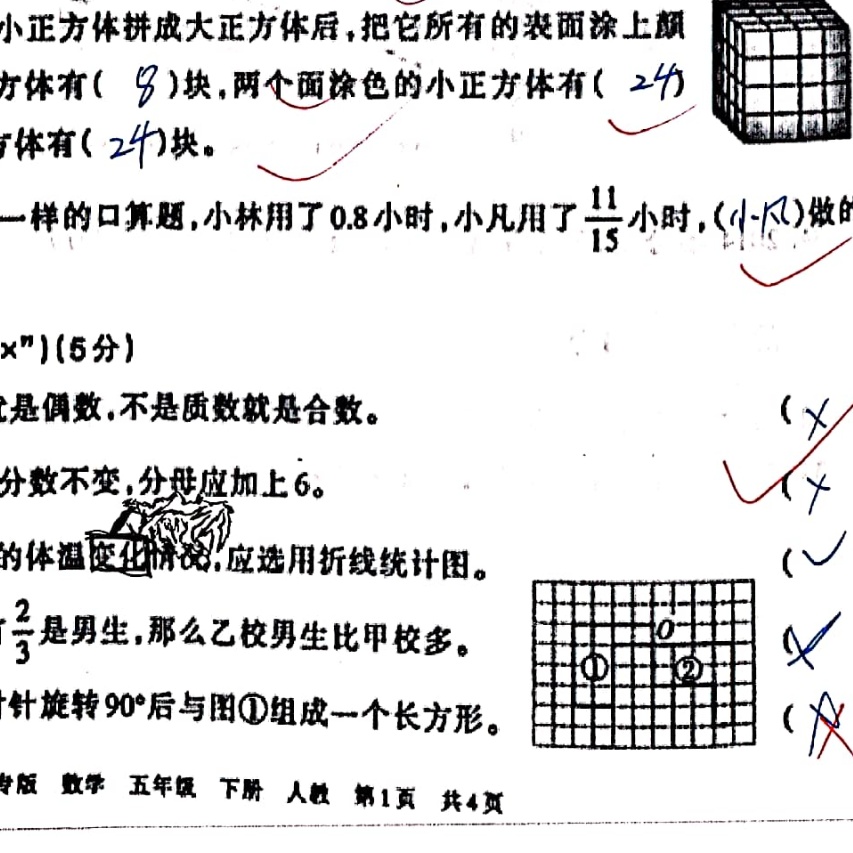 小正方体拼成大正方体后,把它所有的表面涂上颜
方体有( 8 )块,两个面涂色的小正方体有( 24 )
方体有( 24 )块。
一样的口算题,小林用了0.8小时,小凡用了11/15小时,(小凡)做的
×")(5分)
是偶数,不是质数就是合数。 ( ×
分数不变,分母应加上6。 ( ×
的体温变化情况,应选用折线统计图。 ( ✓
2/3是男生,那么乙校男生比甲校多。 ( ×
O
① ②
针旋转90°后与图①组成一个长方形。 ( ×
专版 数学 五年级 下册 人教 第1页 共4页